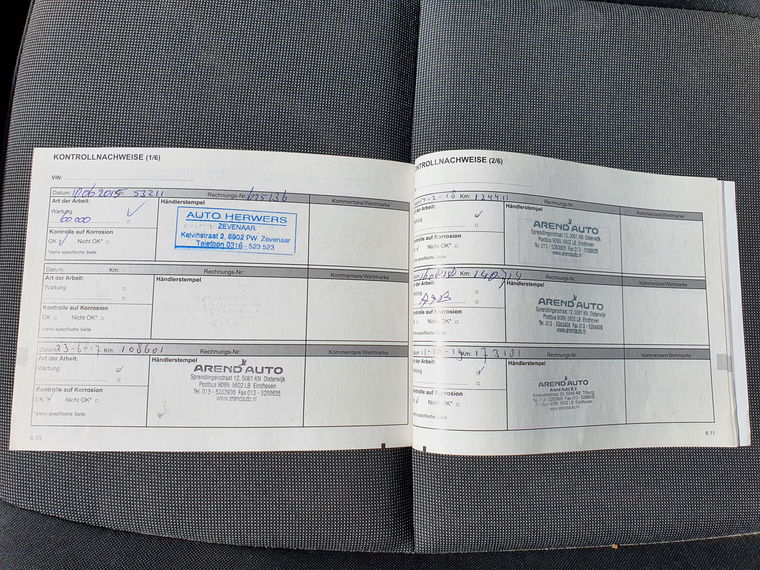 KONTROLLNACHWEISE (1/6)
VIN:
Datum: Km: 53211 Rechnungs-Nr.: Kommentare/Wertmarke
Art der Arbeit: Händlerstempel
Wartung
60000
Kontrolle auf Korrosion
OK Nicht OK*
*siehe spezifische Seite
AUTO HERWERS
ZEVENAAR
Kelvinstraat 2, 6902 PW Zevenaar
Telefoon 0316 - 523 523
Datum: Km: Rechnungs-Nr.: Kommentare/Wertmarke
Art der Arbeit: Händlerstempel
Wartung
Kontrolle auf Korrosion
OK Nicht OK*
*siehe spezifische Seite
Datum: 23-6-17 Km: 108601 Rechnungs-Nr.: Kommentare/Wertmarke
Art der Arbeit: Händlerstempel
Wartung
Kontrolle auf Korrosion
OK Nicht OK*
*siehe spezifische Seite
AREND AUTO
Sprendlingenstraat 12, 5061 KN Oisterwijk
Postbus 9099, 5602 LB Eindhoven
Tel. 013 - 5283905 Fax 013 - 5288635
www.arendauto.nl
6.10
NTROLLNACHWEISE (2/6)
Km: 124411 Rechnungs-Nr.: Kommentare/Wertmarke
der Arbeit: Händlerstempel
Kontrolle auf Korrosion
Nicht OK*
*siehe spezifische Seite
AREND AUTO
Sprendlingenstraat 12, 5061 KN Oisterwijk
Postbus 9099, 5602 LB Eindhoven
Km: Rechnungs-Nr.: Kommentare/Wertmarke
Art der Arbeit: Händlerstempel
Kontrolle auf Korrosion
Nicht OK*
AREND AUTO
Sprendlingenstraat 12, 5061 KN Oisterwijk
Postbus 9099, 5602 LB Eindhoven
Tel. 013 - 5283905 Fax 013 - 5288635
www.arendauto.nl
Km: 173181 Rechnungs-Nr.: Kommentare/Wertmarke
Art der Arbeit: Händlerstempel
Kontrolle auf Korrosion
Nicht OK*
*siehe spezifische Seite
AREND AUTO
Arend Auto B.V.
www.arendauto.nl
6.11